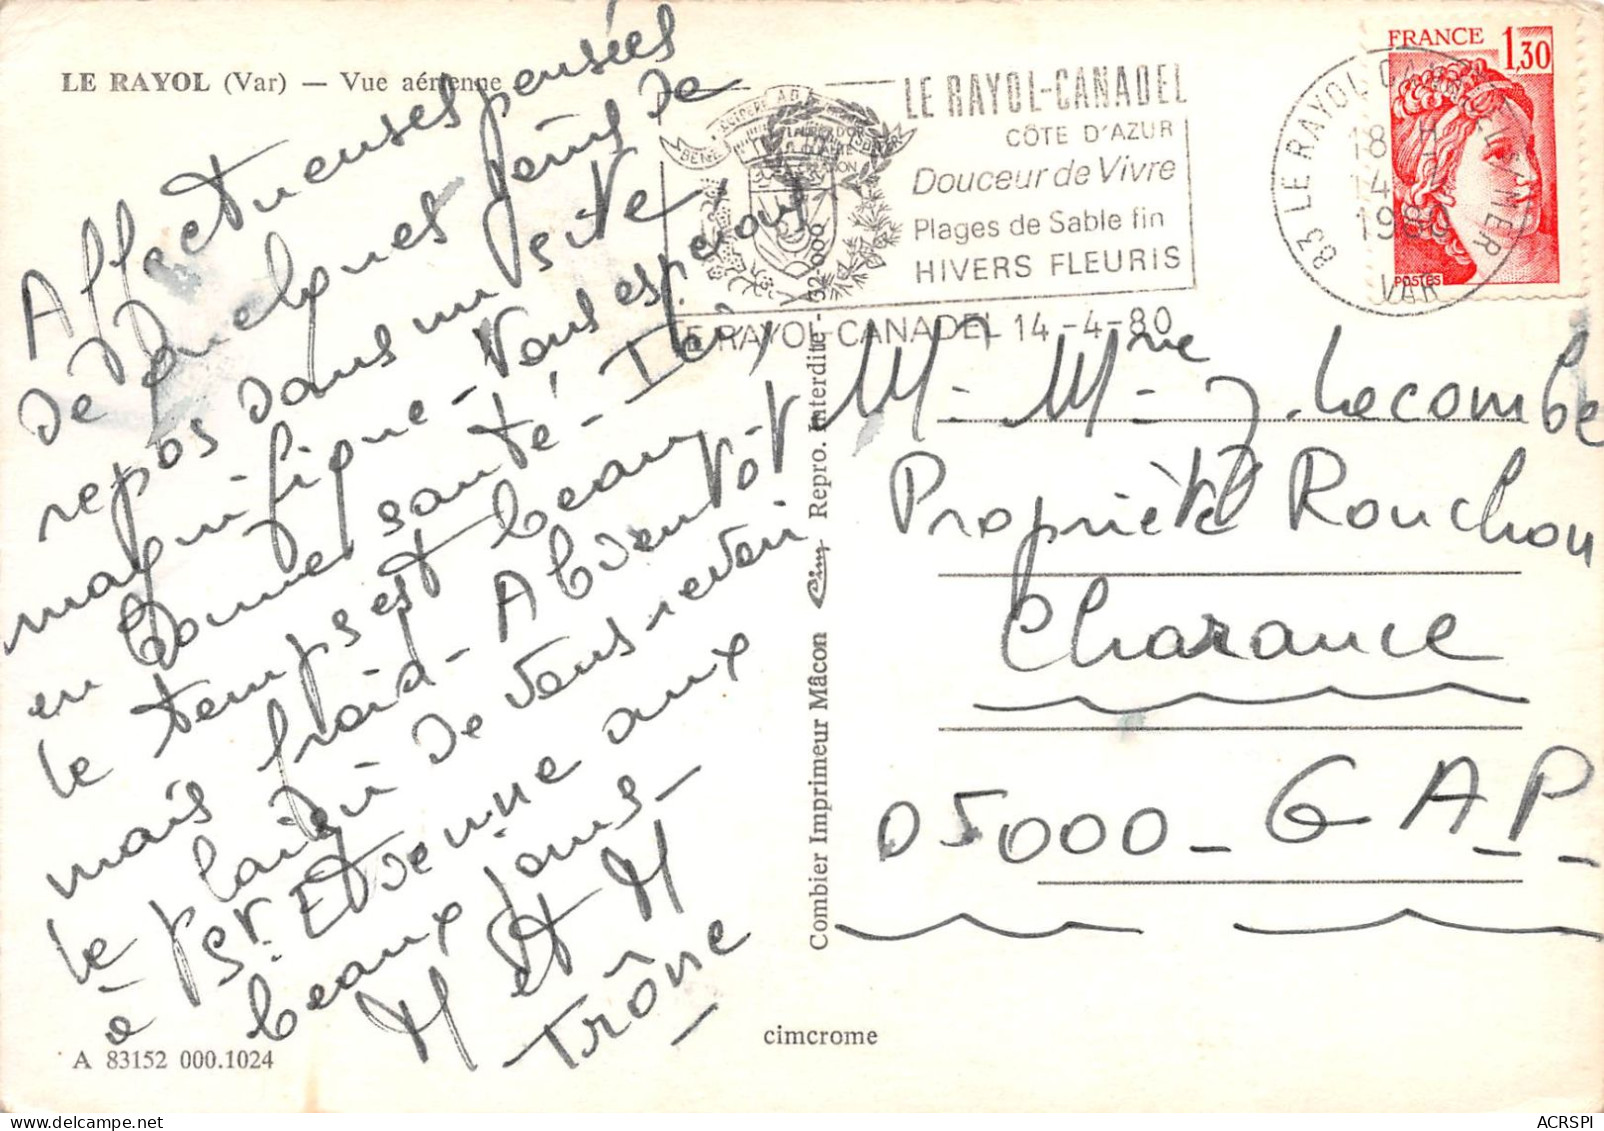 LE RAYOL (Var) — Vue aérienne
Affectueuses pensées
de quelques jours de
repos dans un site
magnifique - Vous espérons
en bonne santé. Ici,
le temps est beau,
mais froid - A bientôt
le plaisir de vous revoir
à St. Etienne aux
beaux jours -
M et M
Trône
A 83152 000.1024
Combier Imprimeur Mâcon Cim Repro. Interdite - 52-000
cimcrome
LE RAYOL-CANADEL
CÔTE D'AZUR
Douceur de Vivre
Plages de Sable fin
HIVERS FLEURIS
LE RAYOL-CANADEL 14-4-80
83 LE RAYOL CANADEL S/MER
18 H
14
1980
VAR
FRANCE 1,30
POSTES
M. Mme J. Lecombe
Propriété Rouchon
Charance
05000 - GAP -
ACRSPI